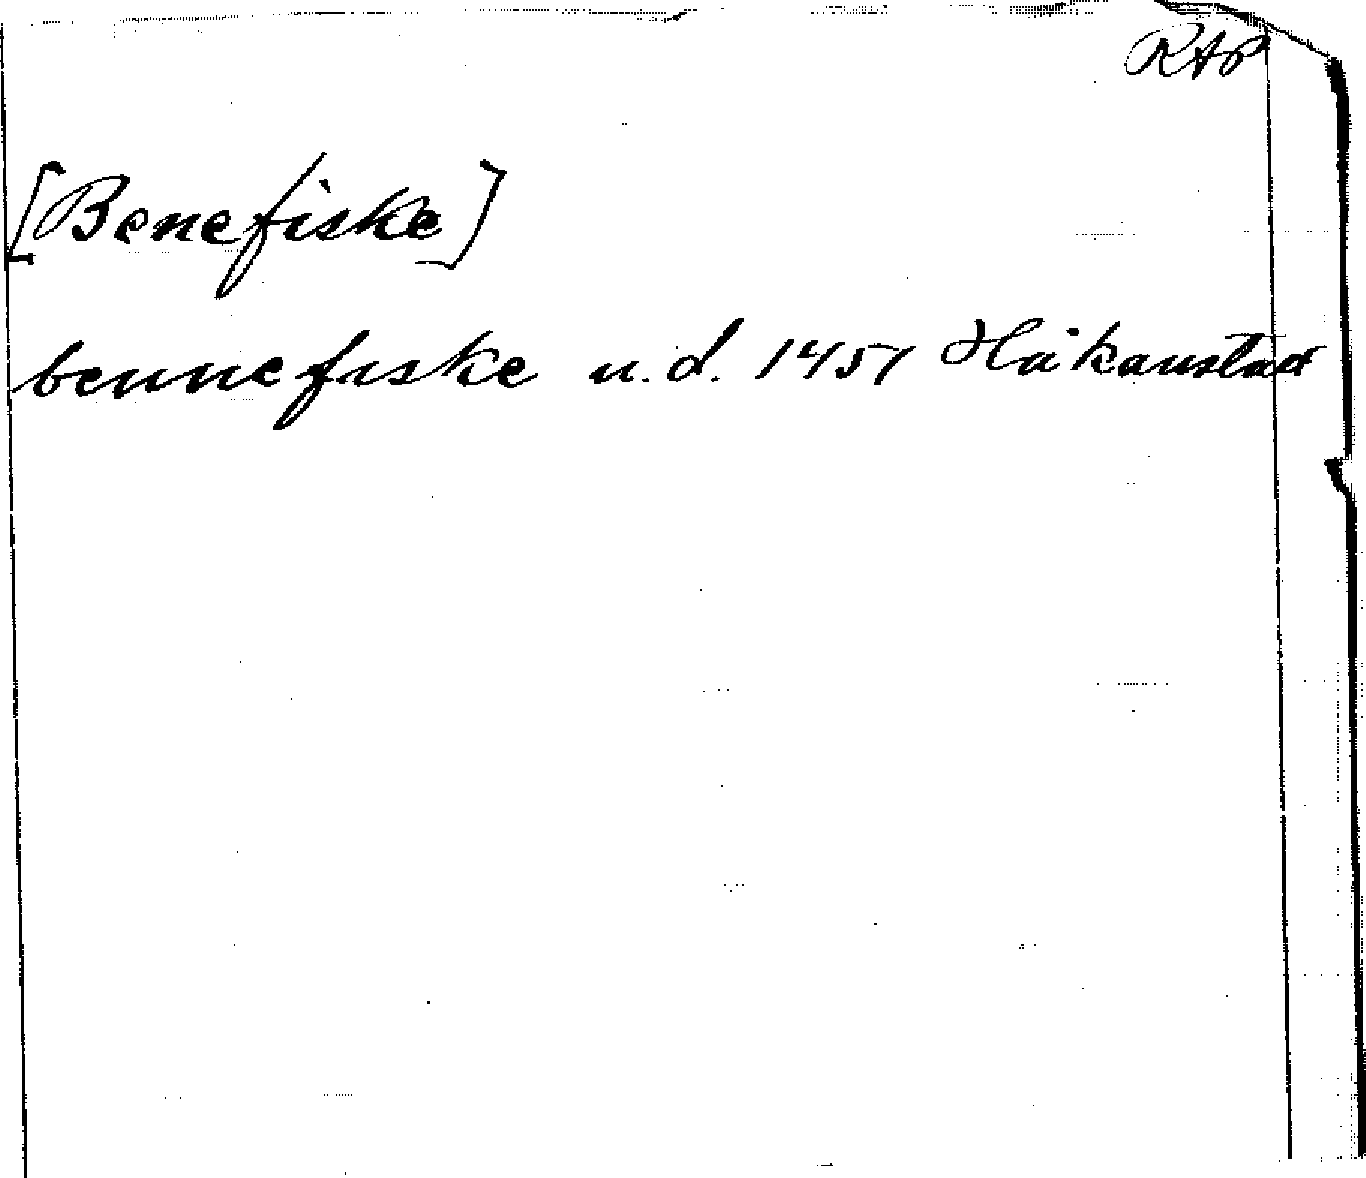 RAP
[Benefiske]
bennefiske u.d. 1451 Håkanstad